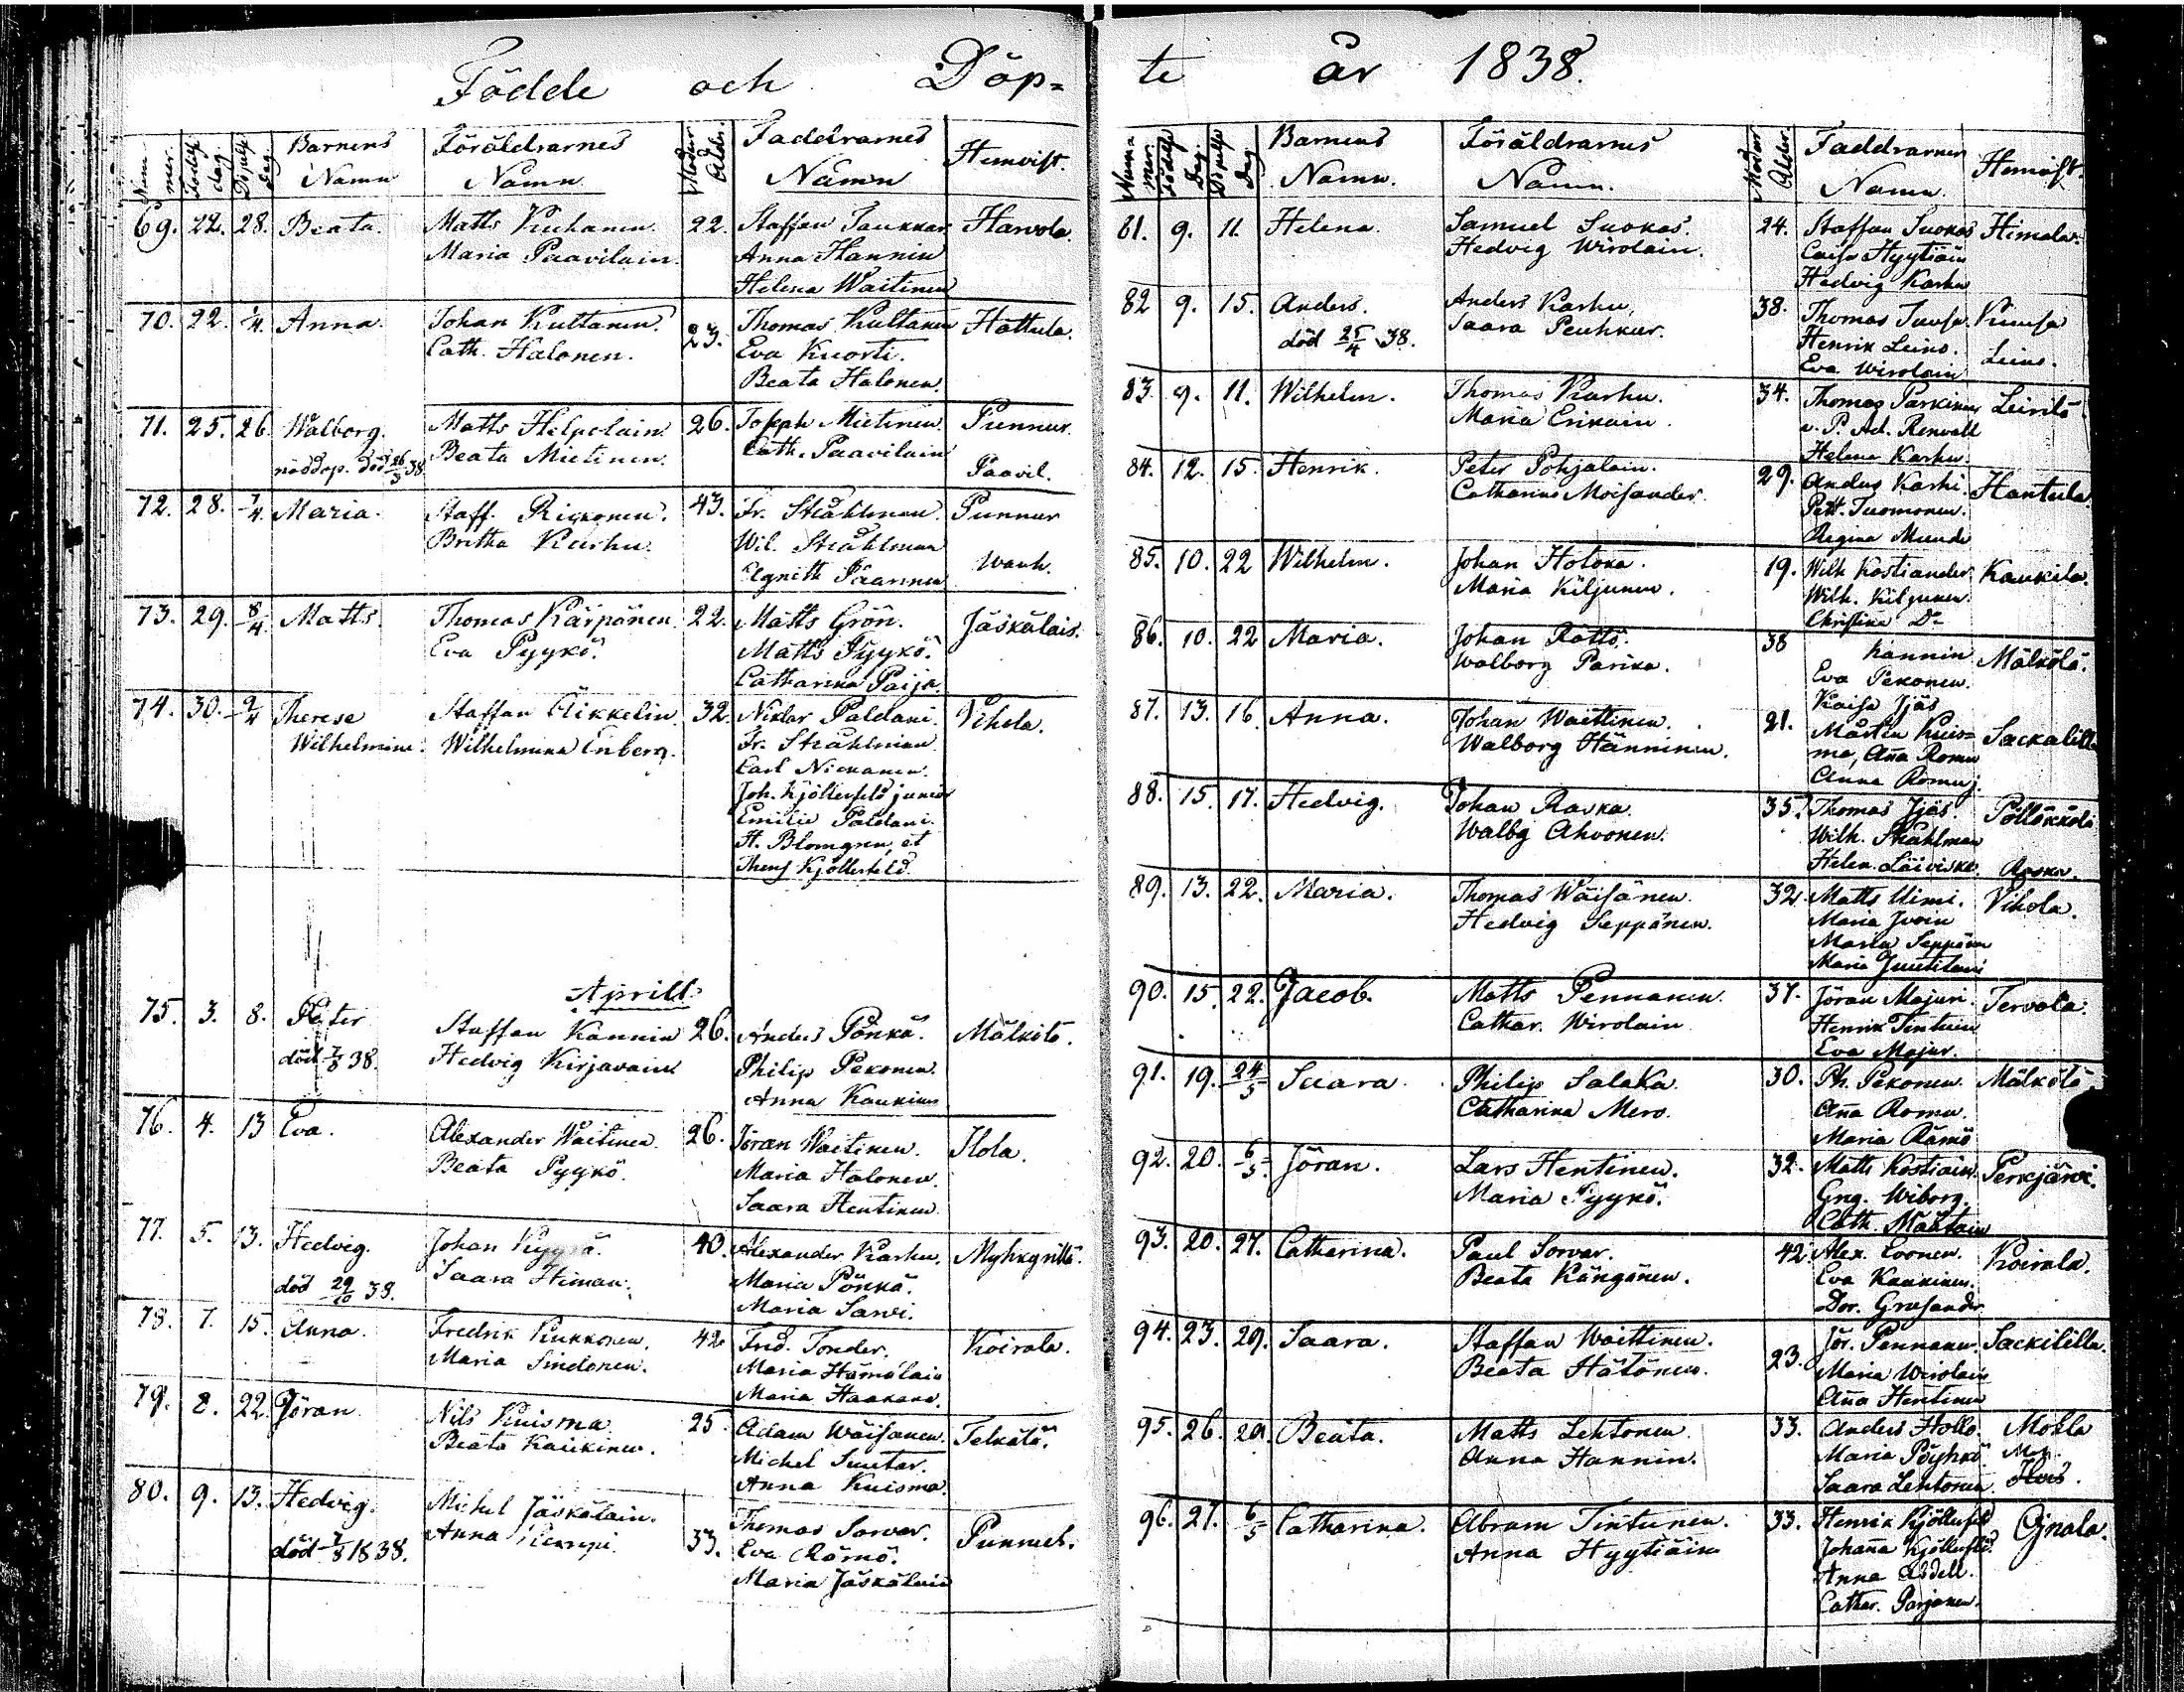 Födde och Döp-
Nummer. Födelse dag. Döpelse dag. Barnens Namn Föräldrarnes Namn Moders Ålder. Faddrarnes Namn Hemvist.
69. 22. 28. Beata. Matts Kuhanen. 22. Staffan Taukkar Harvola.
Maria Paavilain. Anna Hannin
Helena Waitinen
70. 22. 1/4. Anna. Johan Kultanen. 23. Thomas Kultanen Hattula.
Cath. Halonen. Eva Kuorti.
Beata Halonen.
71. 25. 26. Walborg. Matts Helpolain. 26. Joseph Mietinen. Punnus.
nöddöp. död 26/3 38 Beata Mietinen. Cath. Paavilain Paavil.
72. 28. 1/4. Maria. Staff. Rickonen. 43. Fr. Stråhlman. Punnus
Britha Karhu. Wil. Stråhlman Wanh.
Agneth Paannen
73. 29. 8/4. Matts. Thomas Kärpänen. 22. Matts Grön. Jäskälais.
Eva Pyykö. Matts Pyykö.
Catharina Paija.
74. 30. 9/4 Therese Staffan Äikkelin 32. Niklas Paldani. Vihola.
Wilhelmine. Wilhelmina Enberg. Fr. Stråhlman
Carl Nickanen.
Joh. Kjöllerfeld junior
Emilie Paldani.
H. Blomgren, et
Theres Kjöllerfeld.
Aprill
75. 3. 8. Peter Staffan Kannin 26. Anders Pönkä. Mälkölä.
död 7/8 38. Hedvig Kirjavain Philip Pekonen.
Anna Kaukinen
76. 4. 13 Eva. Alexander Waitinen. 26. Jöran Waitinen. Ilola.
Beata Pyykö. Maria Halonen.
Saara Hentinen.
77. 5. 13. Hedvig. Johan 40. Alexander Karhu.
död 29/10 38. Saara Himan. Maria Pönkä.
Maria Sarvi.
78. 7. 15. Anna. Fredrik Kukkonen. 42 Fred. Tonder. Koirala.
Maria Sindonen. Maria Hämäläin
Maria Haakana.
79. 8. 22. Jöran Nils Kuisma 25. Adam Wäisänen. Telkälä.
Beata Kaukinen. Michel Suutar.
Anna Kuisma.
80. 9. 13. Hedvig. Michel Jäskäläin. 33. Thomas Sorvar. Punnus.
död 7/8 1838. Anna Eva Römö.
Maria Jäskäläin
te år 1838.
Nummer. Födelse Dag. Döpelse Dag Barnens Namn. Föräldrarnes Namn. Moders Ålder. Faddrarnes Namn. Hemvist.
81. 9. 11. Helena. Samuel Suokas. 24. Staffan Suokas Himala.
Hedvig Wirolain. Caisa Hyytiäin
Hedvig Karhu
82 9. 15. Anders. Anders Karhu, 38. Thomas Kuusa
död 25/4 38. Saara Peuhkur. Henrik Leino. Leino.
Eva Wirolain
83. 9. 11. Wilhelm. Thomas Karhu. 34. Thomas Parkinen Leinilä
Maria Erikain. v. P. Ad. Renvall
Helena Karhu.
84. 12. 15. Henrik. Peter Pohjalain. 29. Anders Karhi. Hantula.
Catharina Moisander. Pett. Tuomonen.
Regina
85. 10. 22 Wilhelm. Johan Holoka. 19. Wilh. Kostiander. Kaukila.
Maria Kiljunen. Wilh. Kiljunen.
Christina Do
86. 10. 22 Maria. Johan Rättö. 38 Hannin Mälkölä.
Walborg Parika. Eva Pekonen.
Kaisa Ijäs
87. 13. 16 Anna. Johan Waittinen. 21. Mårten Kuis=
Walborg Hänninen. ma, Aña Romu
Anna Romuj.
88. 15. 17. Hedvig. Johan Raska. 35. Thomas Ijäs. Pölläkkälä
Walbg Ahvonen. Wilh. Stråhlman
Helen. Läiviske. Raska.
89. 13. 22. Maria. Thomas Wäisänen. 32. Matts Uimi. Vihola.
Hedvig Seppänen. Maria Ivoin
Maria Seppänen
Maria Juutilain
90. 15. 22. Jacob. Matts Pennanen. 37. Jöran Majuri. Tervola.
Cathar. Wirolain Henrik Tintuin
Eva Majur.
91. 19. 24/5 Saara. Philip Salaka. 30. Ph. Pekonen. Mälkölä.
Catharina Mero. Aña Romu.
Maria Rämö
92. 20. 6/5. Jöran. Lars Hentinen. 32. Matts Kostiain. Perkjärvi.
Maria Pyykö. Eng. Wiborg.
Cath. Määtäin
93. 20. 27. Catharina. Paul Sorvar. 42. Alex. Loonen. Koirala.
Beata Kängänen. Eva Kaukinen.
Dor. Grusander
94. 23. 29. Saara. Staffan Waittinen. 23. Jör. Pennanen. Sackililla.
Beata Hätönen. Maria Wirolain
Aña Hentinen
95. 26. 29. Beata. Matts Lehtonen. 33. Anders Hollo. Molla
Anna Hannin. Maria Pöyhö.
Saara Lehtonen.
96. 27. 6/5 Catharina. Abram Tintunen. 33. Henrik Kjöllerfeld Ojnala.
Anna Hyytiäin Johaña Kjöllerfeld.
Anna Asdell.
Cathar. Parjanen.